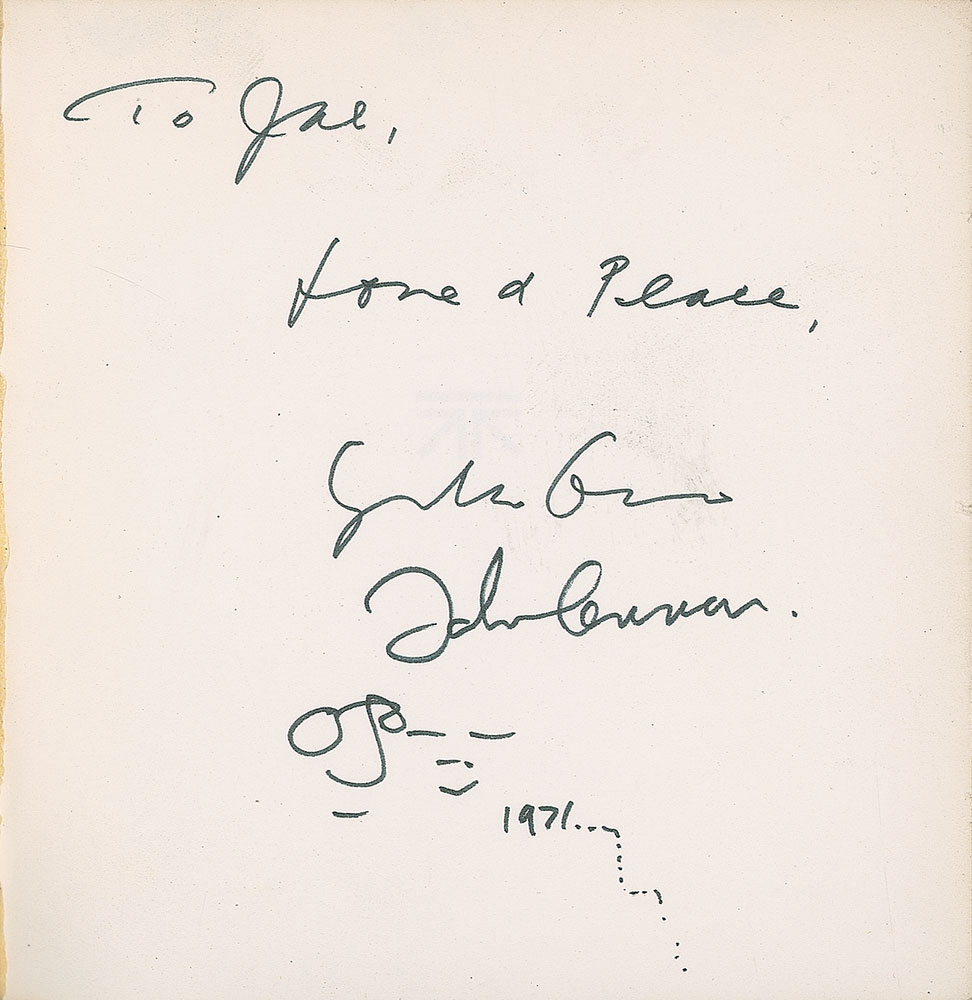 To Jae,
Love & Peace,
Yoko Ono
John Lennon.
1971...